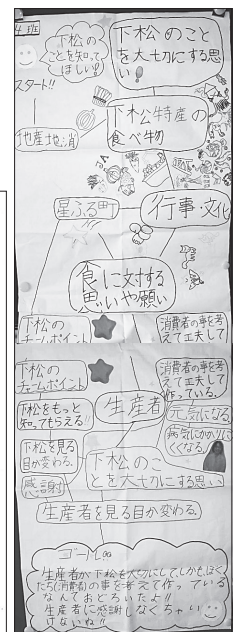 4班
下松の
ことを知って
ほしい!!
スタート!!
下松のこと
を大切にする思
い!
下松特産の
食べ物
地産地消
星ふる町
行事・文化
食に対する
思いや願い
下松の
チャームポイント
消費者の事を考
えて工夫して
下松の
チャームポイント
消費者の事を考
えて工夫して
作っている。
下松をもっと
知ってもらえる!!
生産者
元気になる
病気にかかりに
くくなる。
下松を見る
目が変わる。
下松のこ
とを大切にする思い
感謝
生産者を見る目が変わる。
ゴール
生産者が下松を大切にして、しかも、ぼく
たち(消費者)の事を考えて作っている
なんておどろいたよ!!
生産者に感謝しなくちゃい
けないね!!